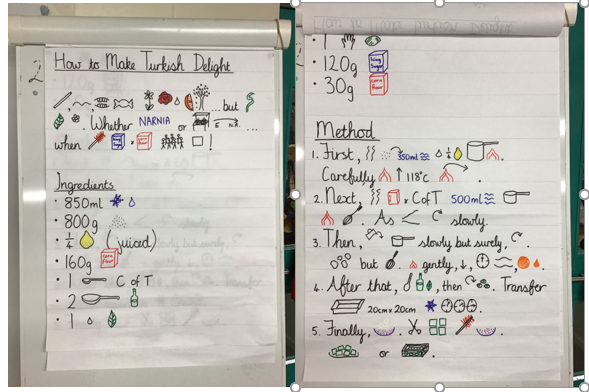 How to Make Turkish Delight
... but
. Whether NARNIA or ...
when !
Ingredients
• 850ml
• 800g
• 1/4 (juiced)
• 160g corn flour
• 1 C of T
• 2
• 1
• 1
• 120g Icing Sugar
• 30g corn flour
Method
1. First, 350ml 1/4 .
Carefully ↑ 118°c .
2. Next, x C of T 500ml
. As < slowly.
3. Then, slowly but surely, .
but gently, ↓, , .
4. After that, , then . Transfer
20cm x 20cm .
5. Finally, . .
or .